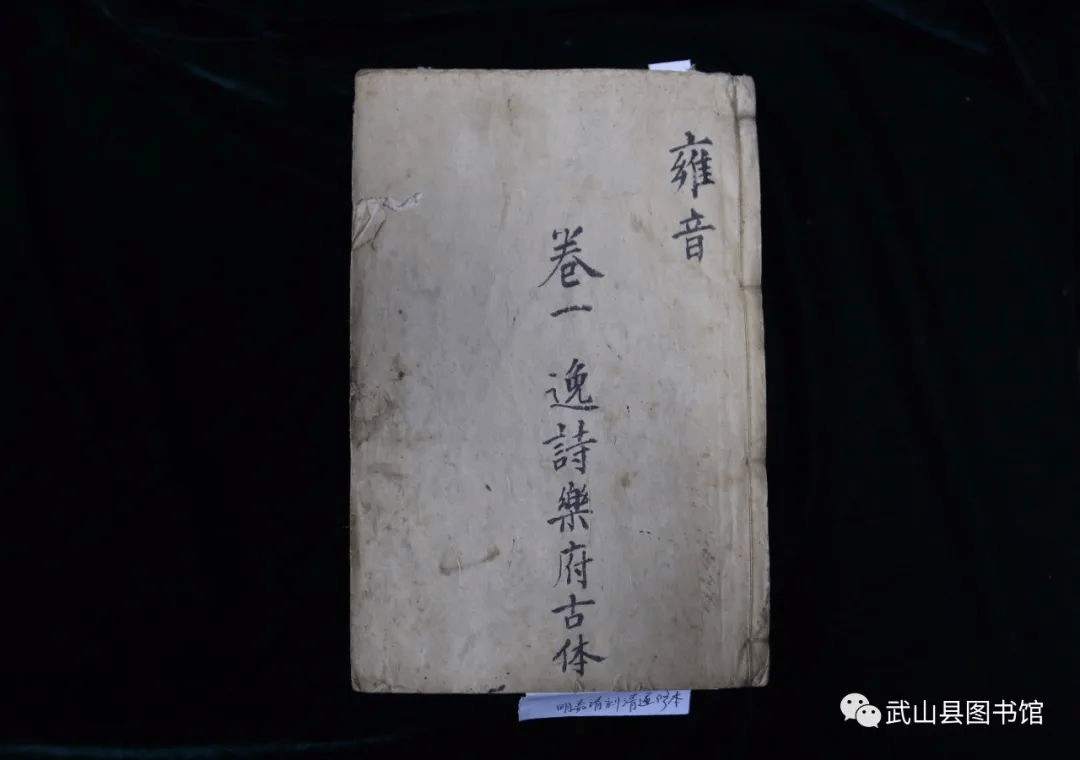 雍音
卷一 逸詩樂府古体
明嘉靖刻清逓修本
武山县图书馆